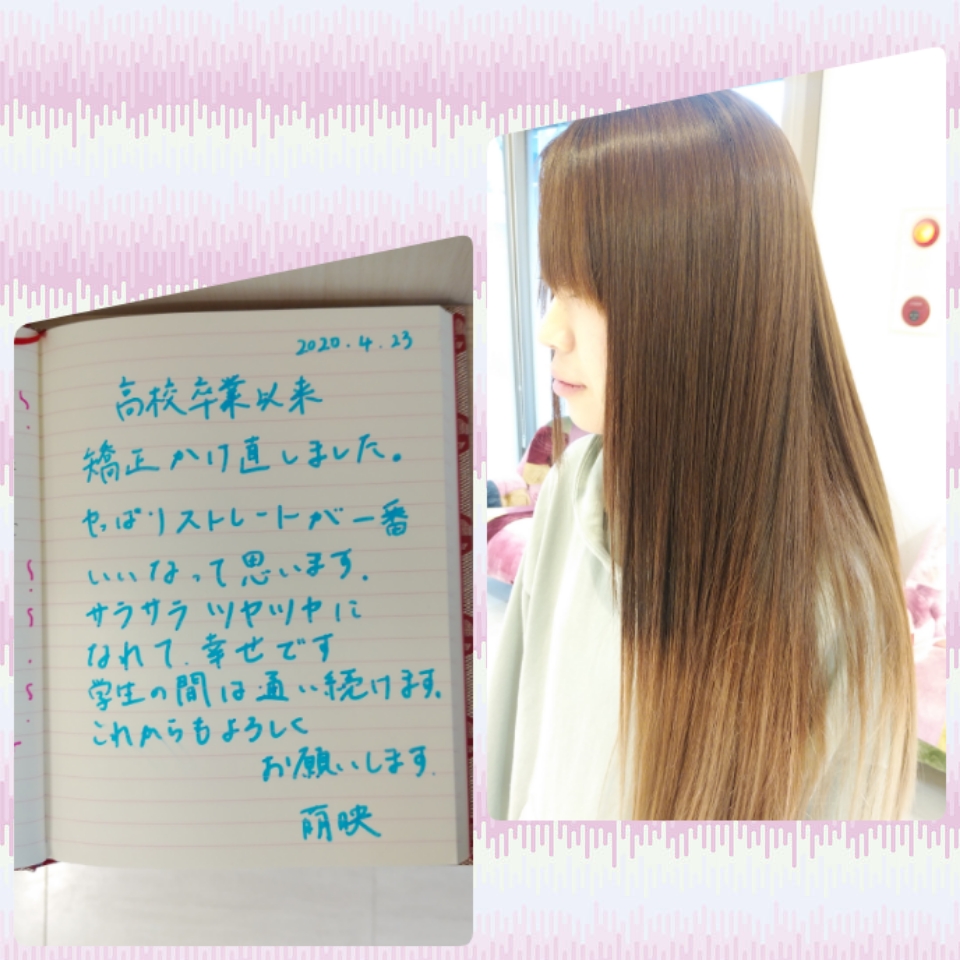 2020.4.23
高校卒業以来
矯正かけ直しました。
やっぱりストレートが一番
いいなって思います.
サラサラ ツヤツヤに
なれて、幸せです
学生の間は通い続けます.
これからもよろしく
お願いします.
萌映